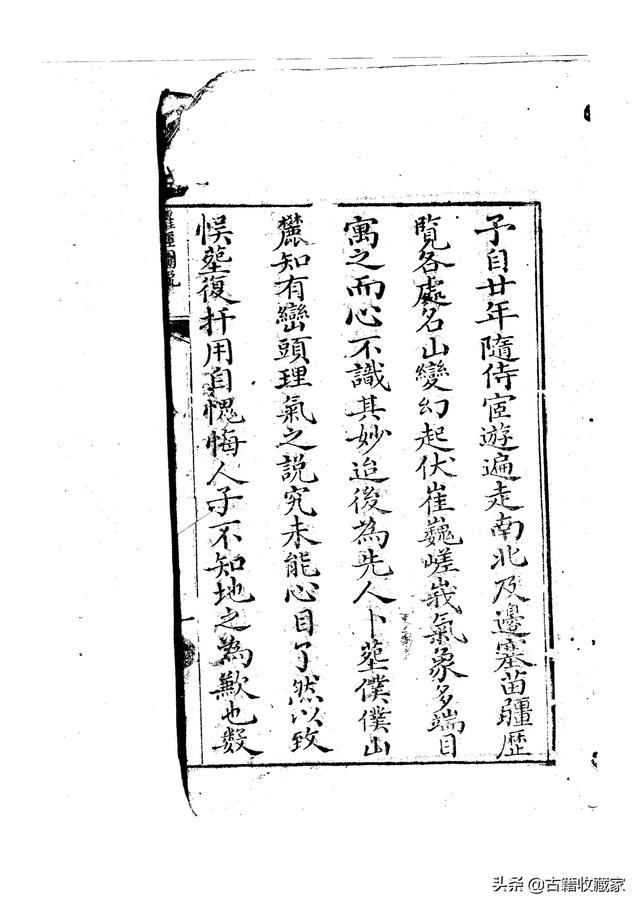 予自廿年隨侍宦遊遍走南北及邊塞苗疆歷
覽各處名山變幻起伏崔巍嵯峩氣象多端目
寓之而心不識其妙迨後為先人卜塟僕僕山
麓知有巒頭理氣之説究未能心目了然以致
悞塟復扦用自愧悔人子不知地之為歉也數
頭条 @古籍收藏家